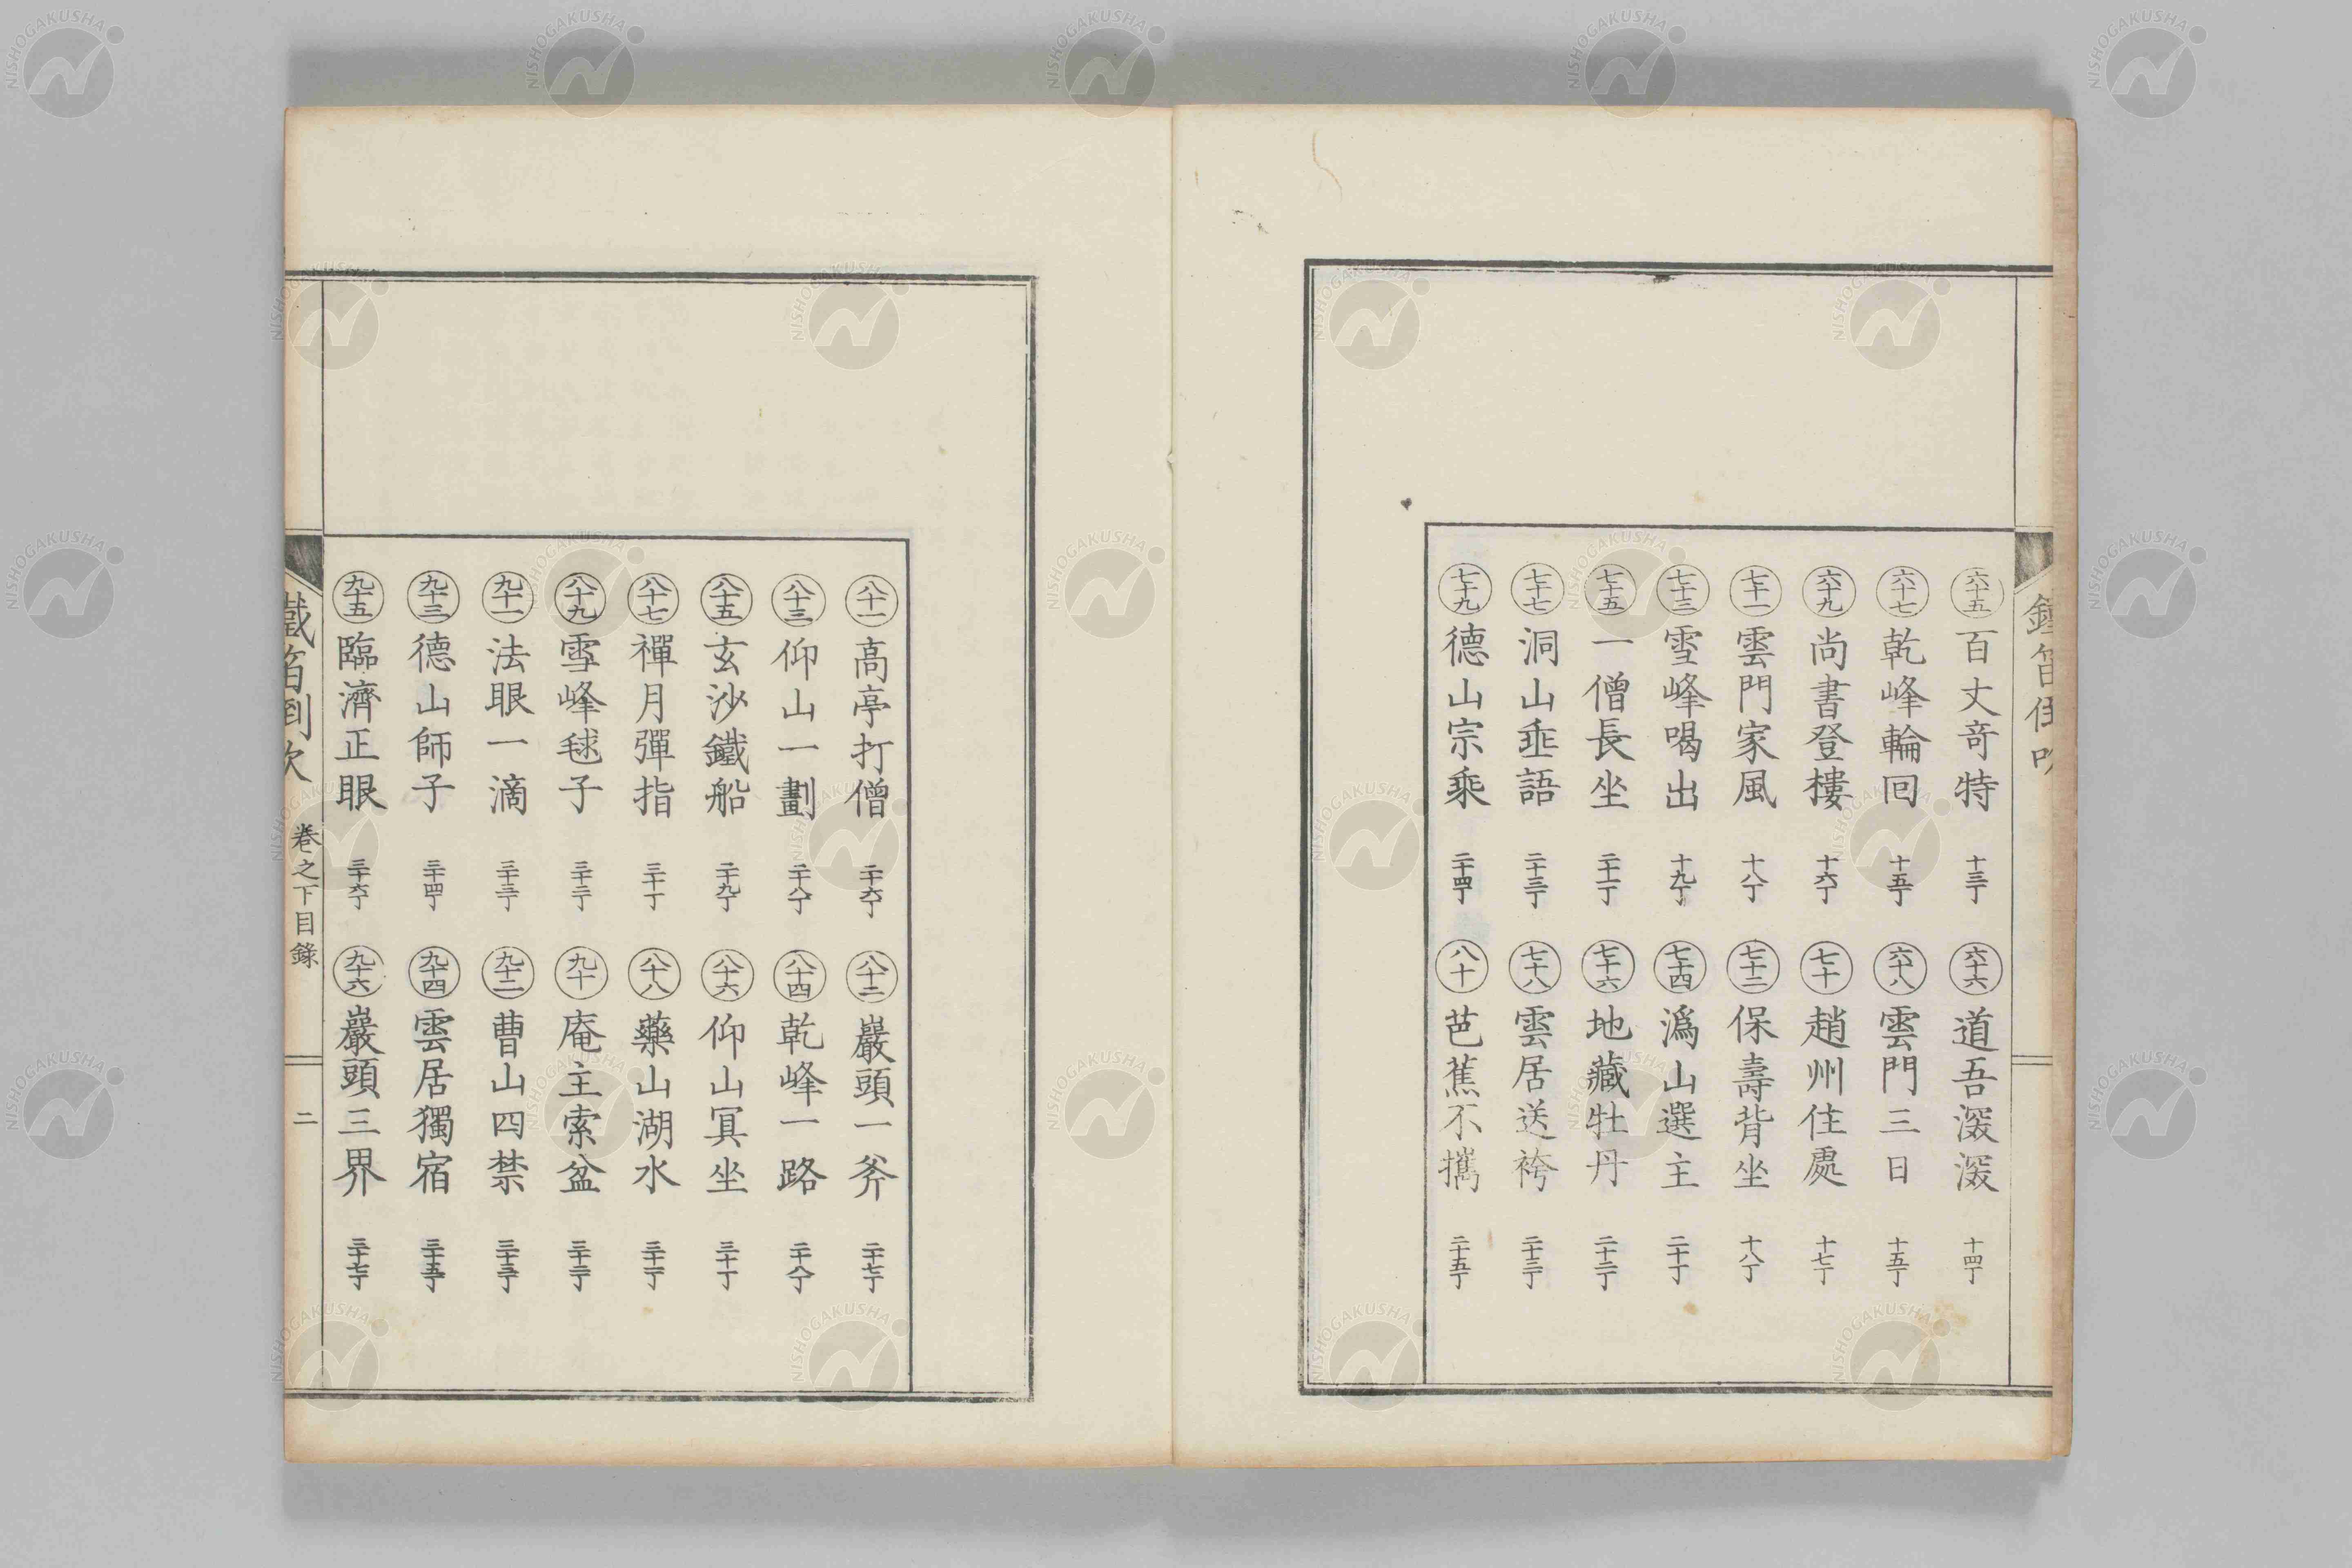 六十五 百丈竒特 十三丁 六十六 道吾深深 十四丁
六十七 乾峰輪回 十五丁 六十八 雲門三日 十五丁
六十九 尚書登樓 十六丁 七十 趙州住處 十七丁
七十一 雲門家風 十八丁 七十二 保壽背坐 十八丁
七十三 雪峰喝出 十九丁 七十四 潙山選主 二十丁
七十五 一僧長坐 二十一丁 七十六 地藏牡丹 二十二丁
七十七 洞山垂語 二十三丁 七十八 雲居送袴 二十三丁
七十九 德山宗乘 二十四丁 八十 芭蕉不攜 二十五丁
八十一 高亭打僧 二十六丁 八十二 巖頭一斧 二十七丁
八十三 仰山一劃 二十八丁 八十四 乾峰一路 二十八丁
八十五 玄沙鐵船 二十九丁 八十六 仰山冥坐 三十丁
八十七 禪月彈指 三十丁 八十八 藥山湖水 三十一丁
八十九 雪峰毬子 三十二丁 九十 庵主索盆 三十二丁
九十一 法眼一滴 三十三丁 九十二 曹山四禁 三十三丁
九十三 德山師子 三十四丁 九十四 雲居獨宿 三十五丁
九十五 臨濟正眼 三十六丁 九十六 巖頭三界 三十七丁
鐵笛倒吹 卷之下目錄 二
NISHOGAKUSHA